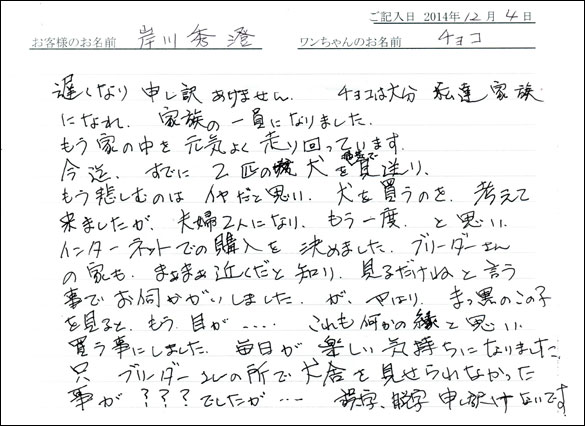 ご記入日 2014年12月4日
お客様のお名前 岸川秀澄 ワンちゃんのお名前 チョコ
遅くなり申し訳ありません。 チョコは大分私達家族
になれ、家族の一員になりました。
もう家の中を元気よく走り回っています。
今迄、すでに2匹の犬を見送り、
もう悲しむのはイヤだと思い、犬を買うのを、考えて
来ましたが、夫婦2人になり、もう一度、と思い
インターネットでの購入を決めました。ブリーダーさん
の家も、まあまあ近くだと知り、見るだけねと言う
事でお伺かがいしました、が、やはり、まっ黒のこの子
を見ると、もう、目が・・・・ これも何かの縁と思い
買う事にしました。毎日が楽しい気持ちになりました。
只 ブリーダーさんの所で犬舎を見せられなかった
事が???でしたが・・・ 誤字、脱字 申し訳けないです